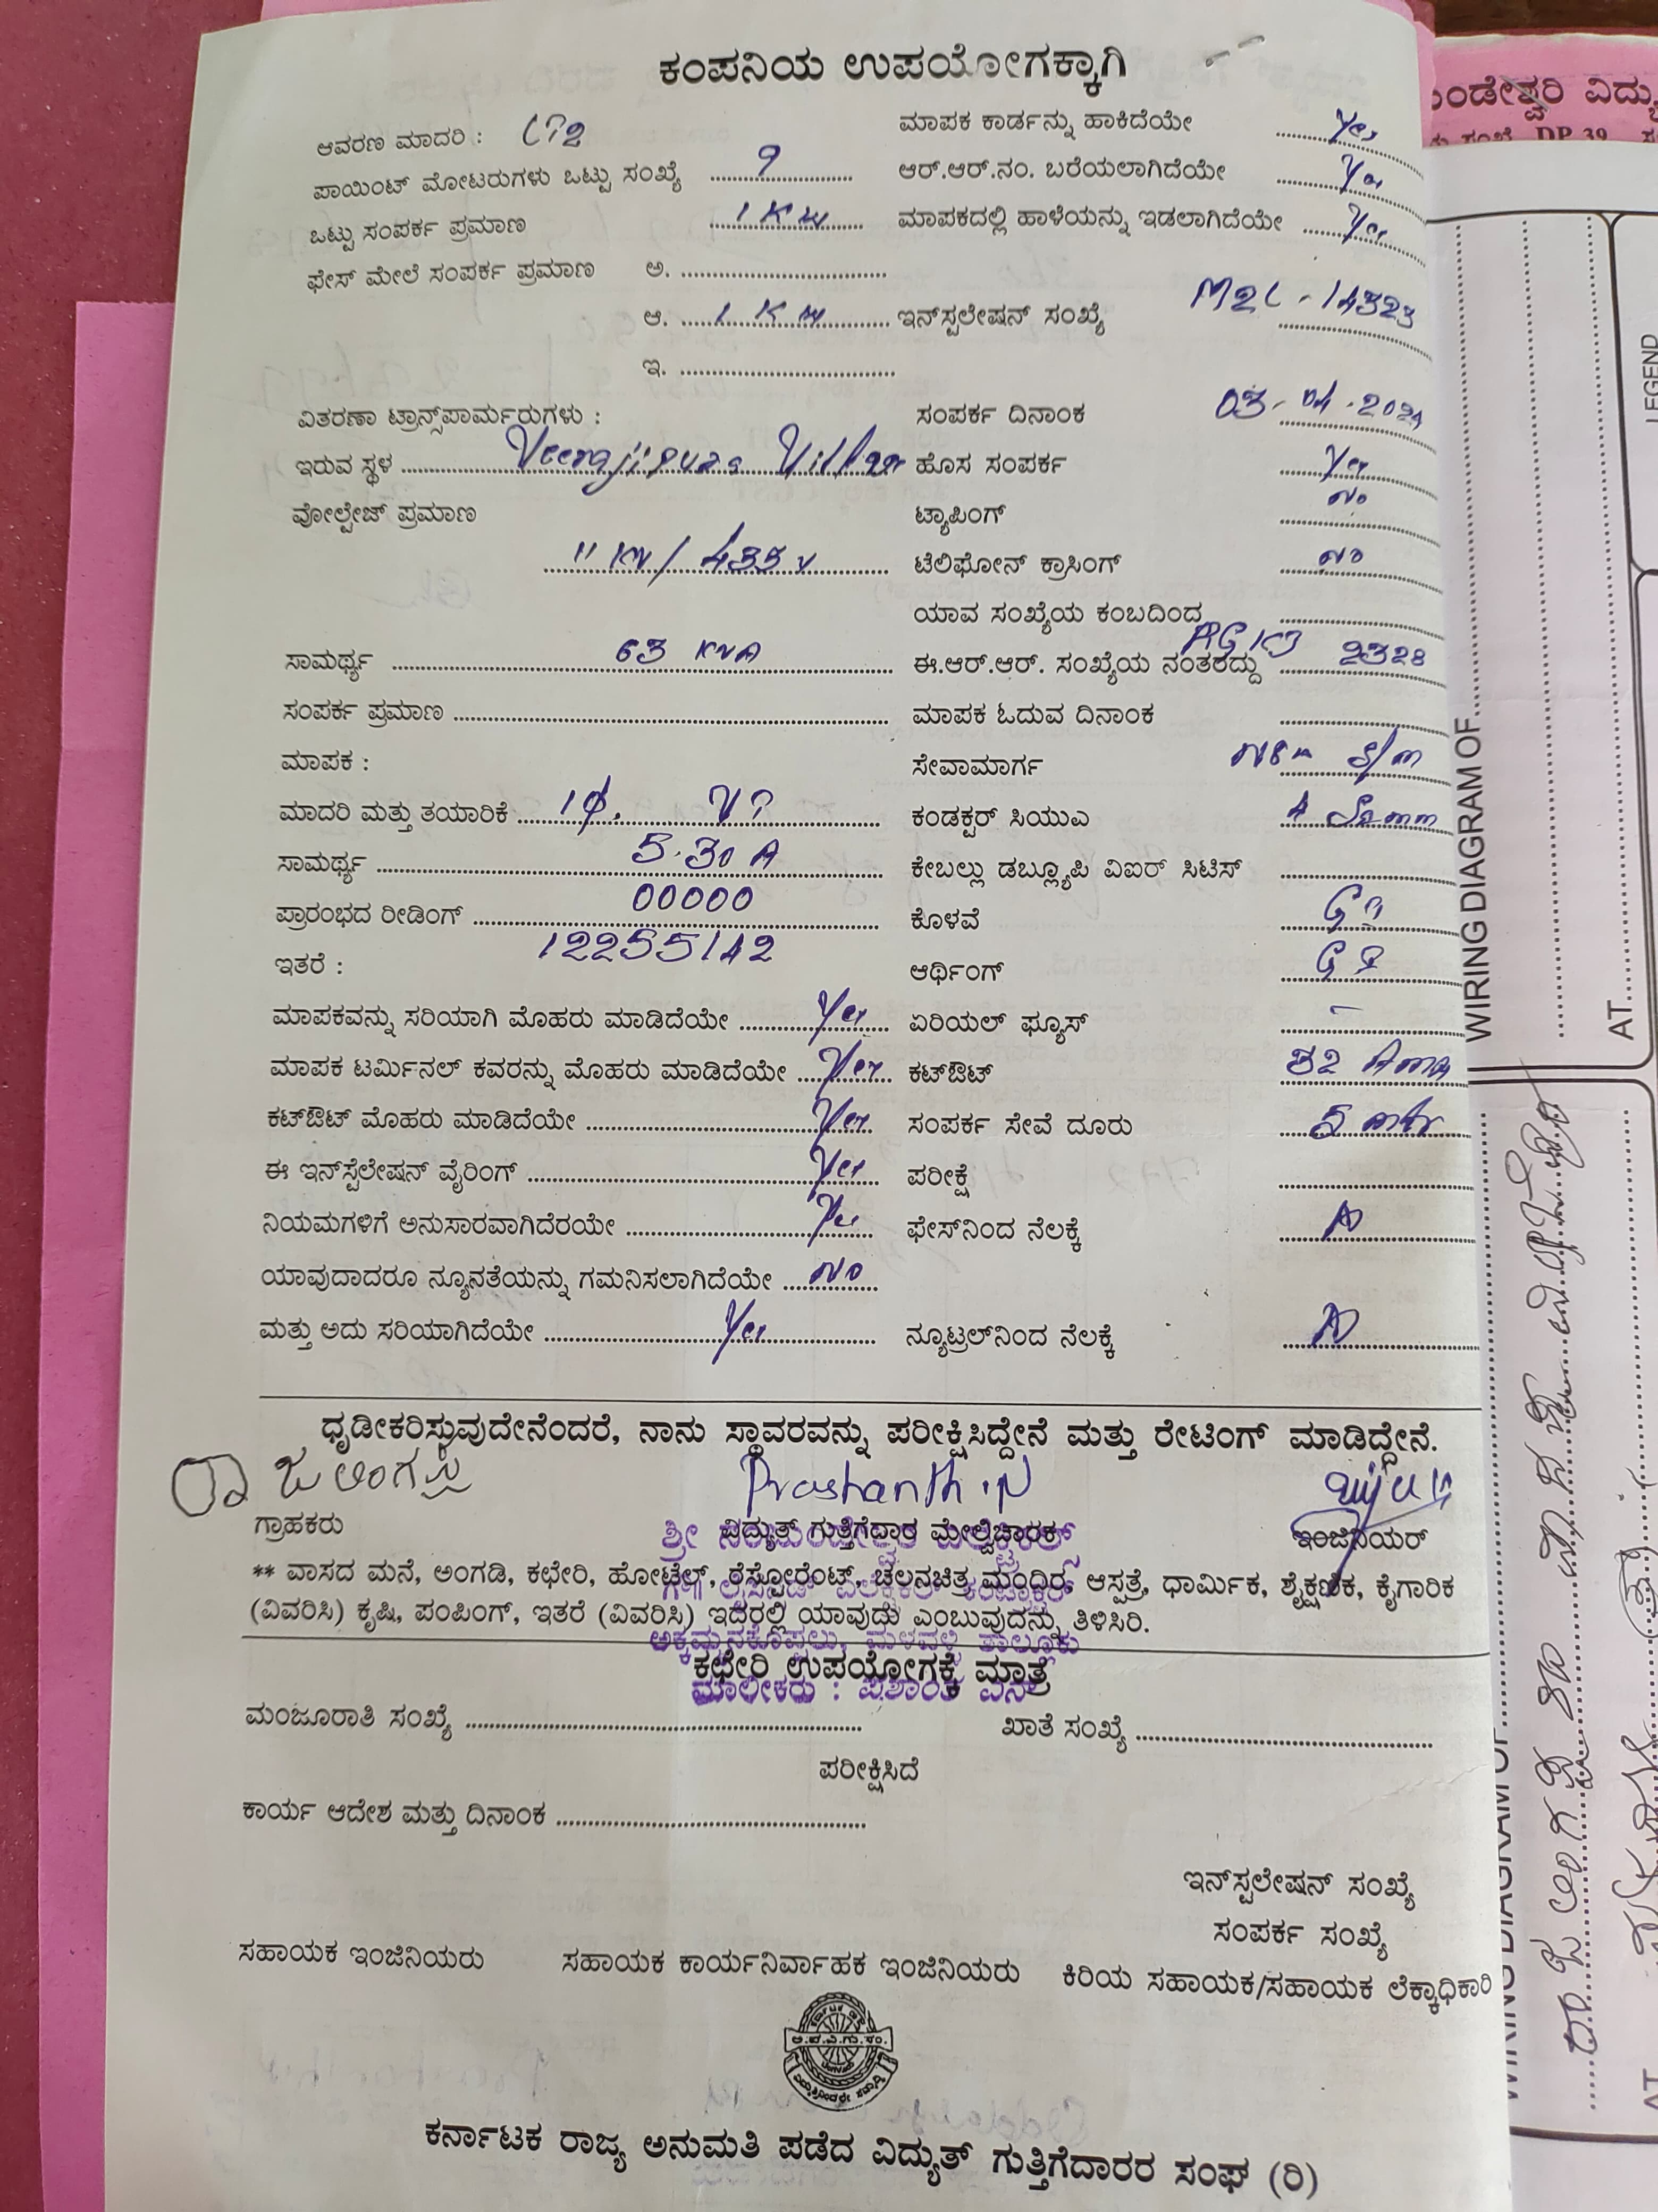 ಕಂಪನಿಯ ಉಪಯೋಗಕ್ಕಾಗಿ
ಆವರಣ ಮಾದರಿ :
ಮಾಪಕ ಕಾರ್ಡನ್ನು ಹಾಕಿದೆಯೇ Yes
ಪಾಯಿಂಟ್ ಮೋಟರುಗಳು ಒಟ್ಟು ಸಂಖ್ಯೆ 9
ಆರ್.ಆರ್.ನಂ. ಬರೆಯಲಾಗಿದೆಯೇ Yes
ಒಟ್ಟು ಸಂಪರ್ಕ ಪ್ರಮಾಣ 1 KW
ಮಾಪಕದಲ್ಲಿ ಹಾಳೆಯನ್ನು ಇಡಲಾಗಿದೆಯೇ Yes
ಫೇಸ್ ಮೇಲೆ ಸಂಪರ್ಕ ಪ್ರಮಾಣ ಅ.
ಆ. 1 KW
ಇನ್‌ಸ್ಟಲೇಷನ್ ಸಂಖ್ಯೆ M2L - 14323
ಇ.
ವಿತರಣಾ ಟ್ರಾನ್ಸ್‌ಪಾರ್ಮರುಗಳು :
ಸಂಪರ್ಕ ದಿನಾಂಕ 03-04-2024
ಇರುವ ಸ್ಥಳ
ಹೊಸ ಸಂಪರ್ಕ Yes
ವೋಲ್ಟೇಜ್ ಪ್ರಮಾಣ
ಟ್ಯಾಪಿಂಗ್ No
11 KV / 433 V
ಟೆಲಿಫೋನ್ ಕ್ರಾಸಿಂಗ್ NO
ಯಾವ ಸಂಖ್ಯೆಯ ಕಂಬದಿಂದ
ಸಾಮರ್ಥ್ಯ 63 KVA
ಈ.ಆರ್.ಆರ್. ಸಂಖ್ಯೆಯ ನಂತರದ್ದು 2328
ಸಂಪರ್ಕ ಪ್ರಮಾಣ
ಮಾಪಕ ಓದುವ ದಿನಾಂಕ
ಮಾಪಕ :
ಸೇವಾಮಾರ್ಗ
ಮಾದರಿ ಮತ್ತು ತಯಾರಿಕೆ 1φ,
ಕಂಡಕ್ಟರ್ ಸಿಯುಎ 4 Sqmm
ಸಾಮರ್ಥ್ಯ 5-30 A
ಕೇಬಲ್ಲು ಡಬ್ಲ್ಯೂಪಿ ವಿಐರ್ ಸಿಟಿಸ್
ಪ್ರಾರಂಭದ ರೀಡಿಂಗ್ 00000
ಕೊಳವೆ GI
ಇತರೆ : 12255142
ಆರ್ಥಿಂಗ್ GI
ಮಾಪಕವನ್ನು ಸರಿಯಾಗಿ ಮೊಹರು ಮಾಡಿದೆಯೇ Yes
ಏರಿಯಲ್ ಫ್ಯೂಸ್ -
ಮಾಪಕ ಟರ್ಮಿನಲ್ ಕವರನ್ನು ಮೊಹರು ಮಾಡಿದೆಯೇ Yes
ಕಟ್‌ಔಟ್ 32 Amp
ಕಟ್‌ಔಟ್ ಮೊಹರು ಮಾಡಿದೆಯೇ Yes
ಸಂಪರ್ಕ ಸೇವೆ ದೂರು 5 mtr
ಈ ಇನ್‌ಸ್ಟೆಲೇಷನ್ ವೈರಿಂಗ್ Yes
ಪರೀಕ್ಷೆ
ನಿಯಮಗಳಿಗೆ ಅನುಸಾರವಾಗಿದೆರಯೇ Yes
ಫೇಸ್‌ನಿಂದ ನೆಲಕ್ಕೆ
ಯಾವುದಾದರೂ ನ್ಯೂನತೆಯನ್ನು ಗಮನಿಸಲಾಗಿದೆಯೇ NO
ಮತ್ತು ಅದು ಸರಿಯಾಗಿದೆಯೇ Yes
ನ್ಯೂಟ್ರಲ್‌ನಿಂದ ನೆಲಕ್ಕೆ
ಧೃಡೀಕರಿಸ್ತುವುದೇನೆಂದರೆ, ನಾನು ಸ್ಥಾವರವನ್ನು ಪರೀಕ್ಷಿಸಿದ್ದೇನೆ ಮತ್ತು ರೇಟಿಂಗ್ ಮಾಡಿದ್ದೇನೆ.
Prashanth .N
ಗ್ರಾಹಕರು
ವಿದ್ಯುತ್ ಗುತ್ತಿಗೆದಾರ ಮೇಲ್ವಿಚಾರಕ
ಇಂಜಿನಿಯರ್
** ವಾಸದ ಮನೆ, ಅಂಗಡಿ, ಕಛೇರಿ, ಹೋಟೆಲ್, ರೆಸ್ಟೋರೆಂಟ್, ಚಲನಚಿತ್ರ ಮಂದಿರ, ಆಸ್ಪತ್ರೆ, ಧಾರ್ಮಿಕ, ಶೈಕ್ಷಣಿಕ, ಕೈಗಾರಿಕ
(ವಿವರಿಸಿ) ಕೃಷಿ, ಪಂಪಿಂಗ್, ಇತರೆ (ವಿವರಿಸಿ) ಇದರಲ್ಲಿ ಯಾವುದು ಎಂಬುವುದನ್ನು ತಿಳಿಸಿರಿ.
ಕಛೇರಿ ಉಪಯೋಗಕ್ಕೆ ಮಾತ್ರ
ಮಾಲೀಕರು : ಪ್ರಶಾಂತ ಎನ್
ಮಂಜೂರಾತಿ ಸಂಖ್ಯೆ
ಖಾತೆ ಸಂಖ್ಯೆ
ಪರೀಕ್ಷಿಸಿದೆ
ಕಾರ್ಯ ಆದೇಶ ಮತ್ತು ದಿನಾಂಕ
ಇನ್‌ಸ್ಟಲೇಷನ್ ಸಂಖ್ಯೆ
ಸಂಪರ್ಕ ಸಂಖ್ಯೆ
ಸಹಾಯಕ ಇಂಜಿನಿಯರು
ಸಹಾಯಕ ಕಾರ್ಯನಿರ್ವಾಹಕ ಇಂಜಿನಿಯರು
ಕಿರಿಯ ಸಹಾಯಕ/ಸಹಾಯಕ ಲೆಕ್ಕಾಧಿಕಾರಿ
ಕರ್ನಾಟಕ ರಾಜ್ಯ ಅನುಮತಿ ಪಡೆದ ವಿದ್ಯುತ್ ಗುತ್ತಿಗೆದಾರರ ಸಂಘ (ರಿ)
LEGEND
WIRING DIAGRAM OF
AT